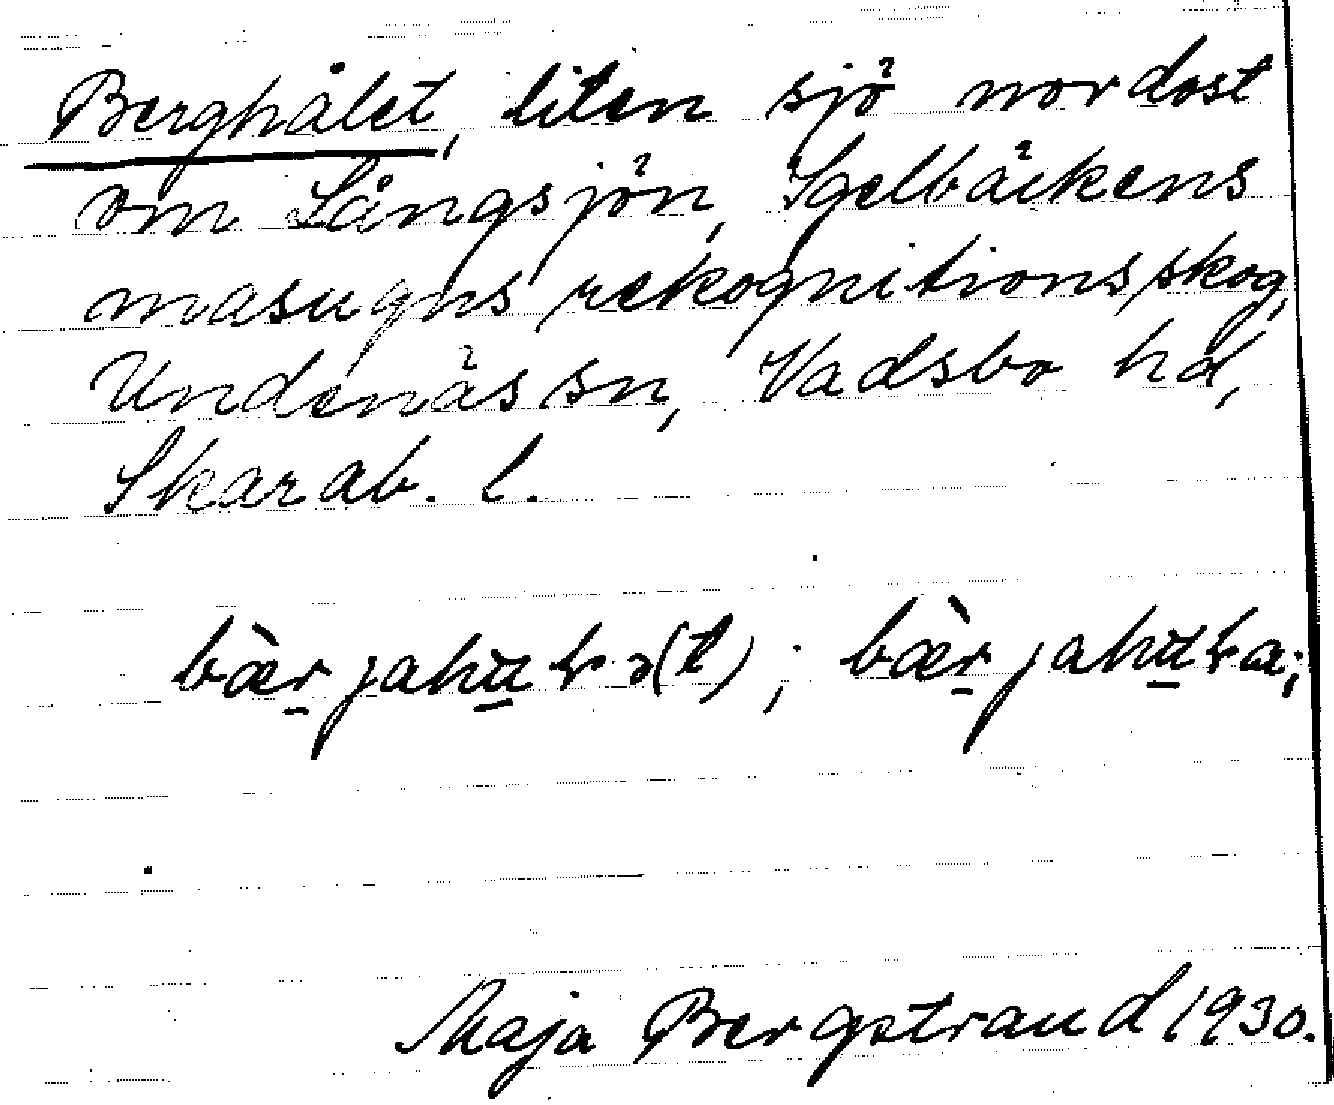 Berghålet, liten sjö nordost
om Långsjön, Igelbäckens
masugns rekognitionsskog,
Undenäs sn, Vadsbo hd,
Skarab. l.
Maja Bergstrand 1930.